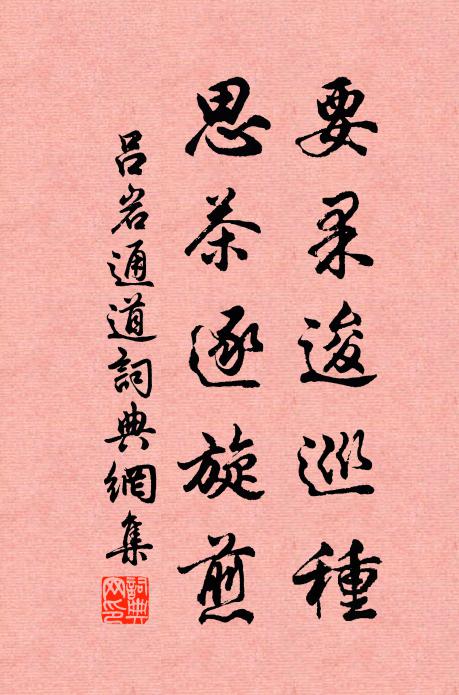 要果逡巡種
思茶逐旋煎
呂岩通道詞典網集
詞典
网印